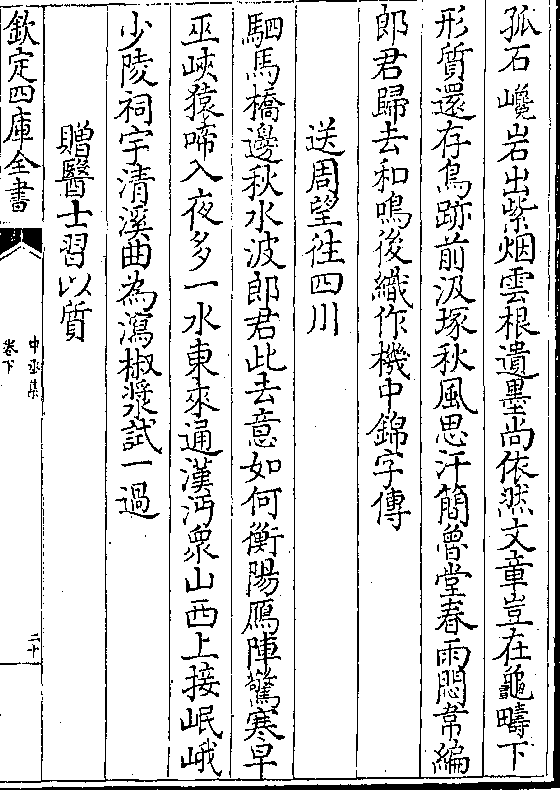 孤石巉岩出紫烟雲根遺墨尚依然文章豈在龜疇下
形質還存鳥跡前汲塚秋風思汗簡魯堂春雨悶韋編
郎君歸去和鳴後織作機中錦字傳
送周望徃四川
駟馬橋邊秋水波郎君此去意如何衡陽鴈陣驚寒早
巫峽猿啼入夜多一水東來通漢沔衆山西上接岷峨
少陵祠宇清溪曲為瀉椒漿試一過
贈醫士習以質
欽定四庫全書
中丞集
卷下
二十